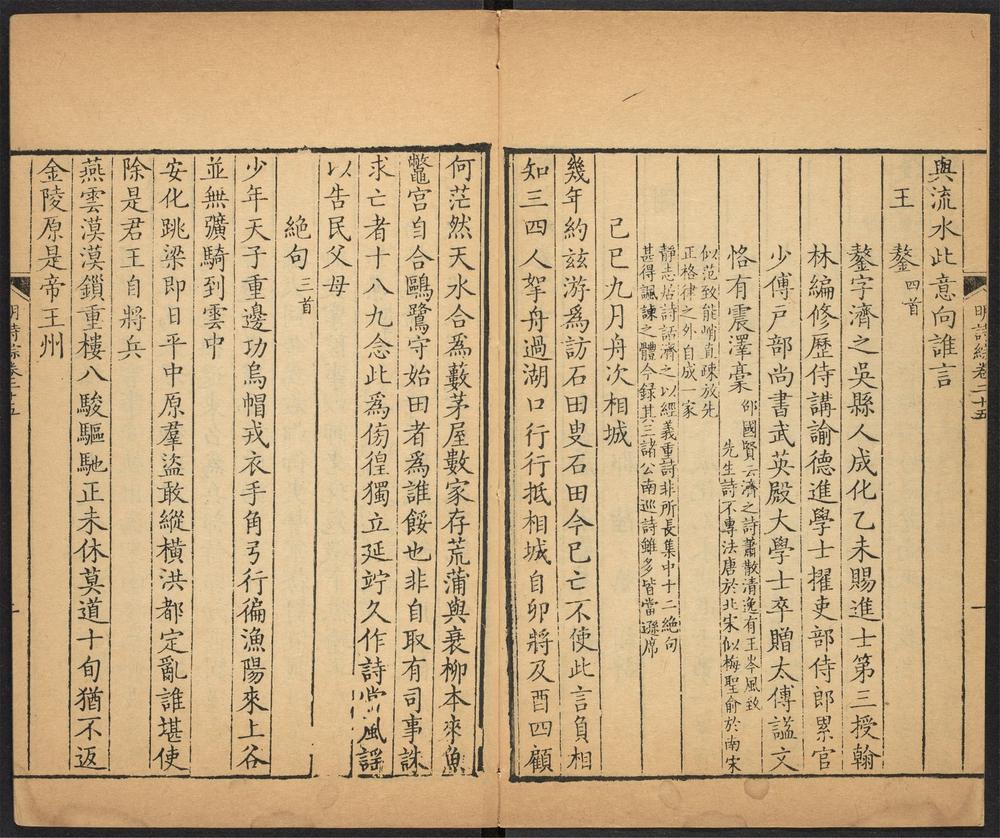 與流水此意向誰言
王鏊四首
鏊字濟之吳縣人成化乙未賜進士第三授翰
林編修歷侍講諭德進學士擢吏部侍郎累官
少傅戶部尚書武英殿大學士卒贈太傅謚文
恪有震澤稾
邵國賢云濟之詩蕭散清逸有王岑風致
先生詩不專法唐於北宋似梅聖俞於南宋
似范致能峭直疎放先
正格律之外自成一家
靜志居詩話濟之以經義重詩非所長集中十二絶句
甚得諷諫之體今録其三諸公南巡詩雖多皆當遜席
己巳九月舟次相城
幾年約兹游爲訪石田叟石田今已亡不使此言負相
知三四人拏舟過湖口行行抵相城自卯將及酉四顧
何茫然天水合爲藪茅屋數家存荒蒲與衰柳本來魚
鼈宮自合鷗鷺守始田者爲誰餒也非自取有司事誅
求亡者十八九念此爲傍徨獨立延竚久作詩當風謡
以告民父母
絶句三首
少年天子重邊功烏帽戎衣手角弓行徧漁陽來上谷
並無獷騎到雲中
安化跳梁即日平中原羣盜敢縱橫洪都定亂誰堪使
除是君王自將兵
燕雲漠漠鎖重樓八駿驅馳正未休莫道十旬猶不返
金陵原是帝王州
明詩綜卷二十五
一
明詩綜卷二十五